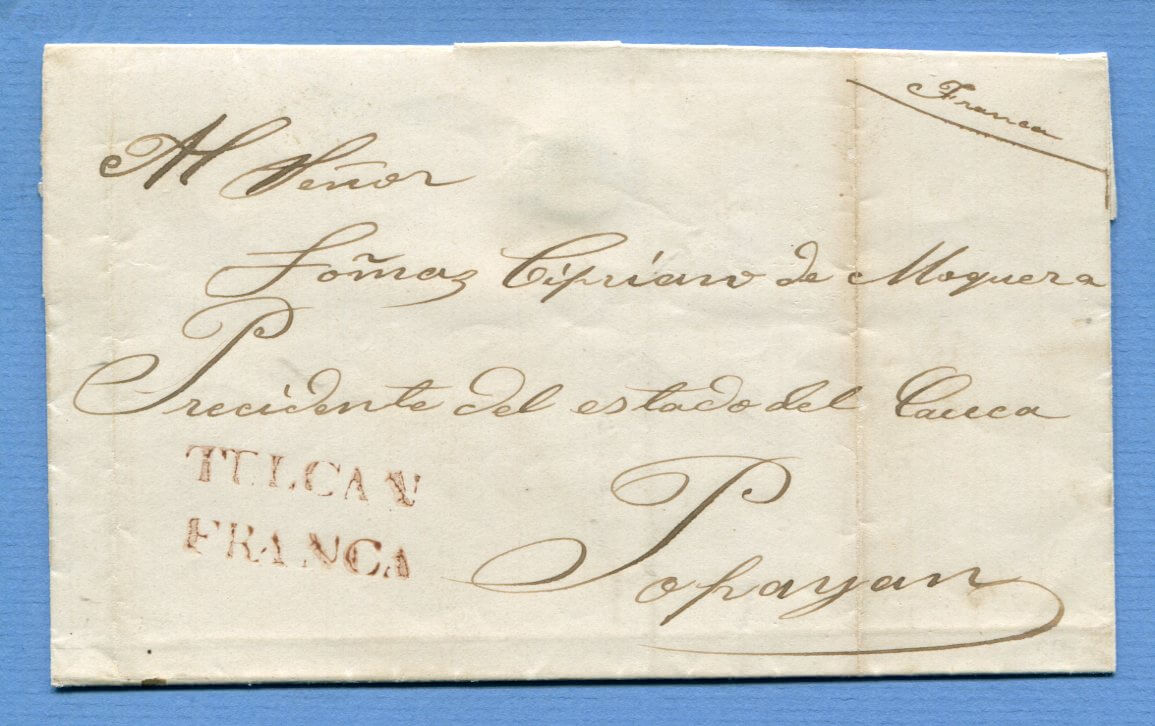 Franca
Al Señor
Tomas Cipriano de Moquera
Precidente del estado del Cauca
TULCAN
FRANCA
Popayan